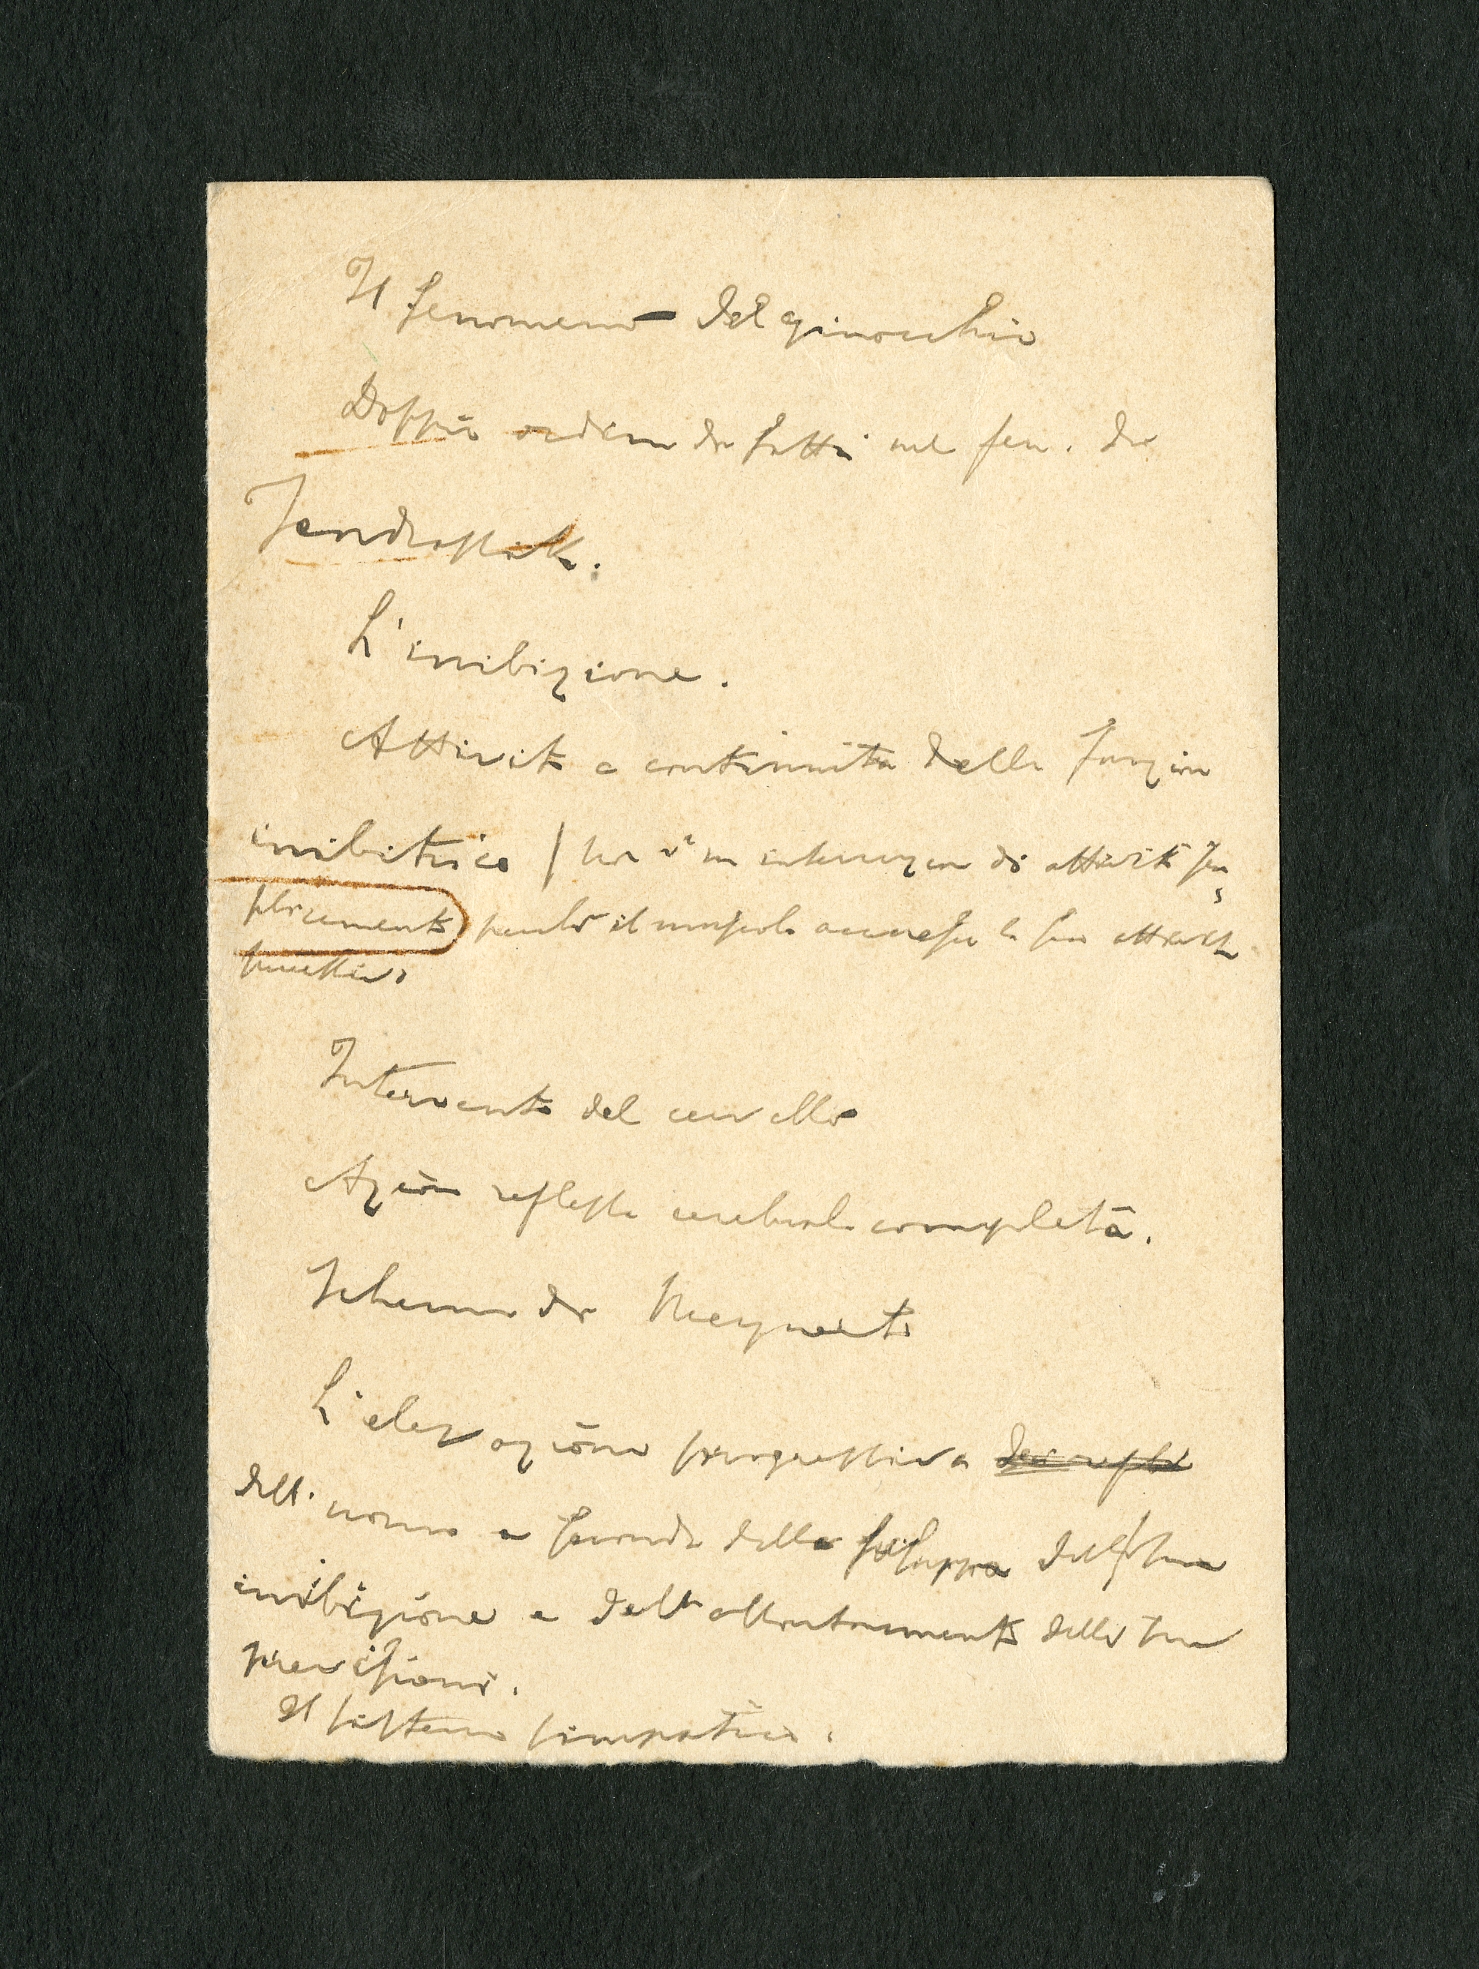 Il fenomeno del ginocchio
Doppio ordine di fatti nel fen. di
Jendrassik.
L'inibizione.
Attività e continuità della funzione
inibitrice / non v'è un interruzione di attività sem
plicemente perché il muscolo accresce la sua attività
Intervento del cervello
Azione riflessa cerebrale completa.
Schema di Meynert
L'elevazione progressiva dei riflessi
dell'uomo a seconda della della sua
inibizione e dell' allontanamento delle sue
previsioni.
Il sistema simpatico.